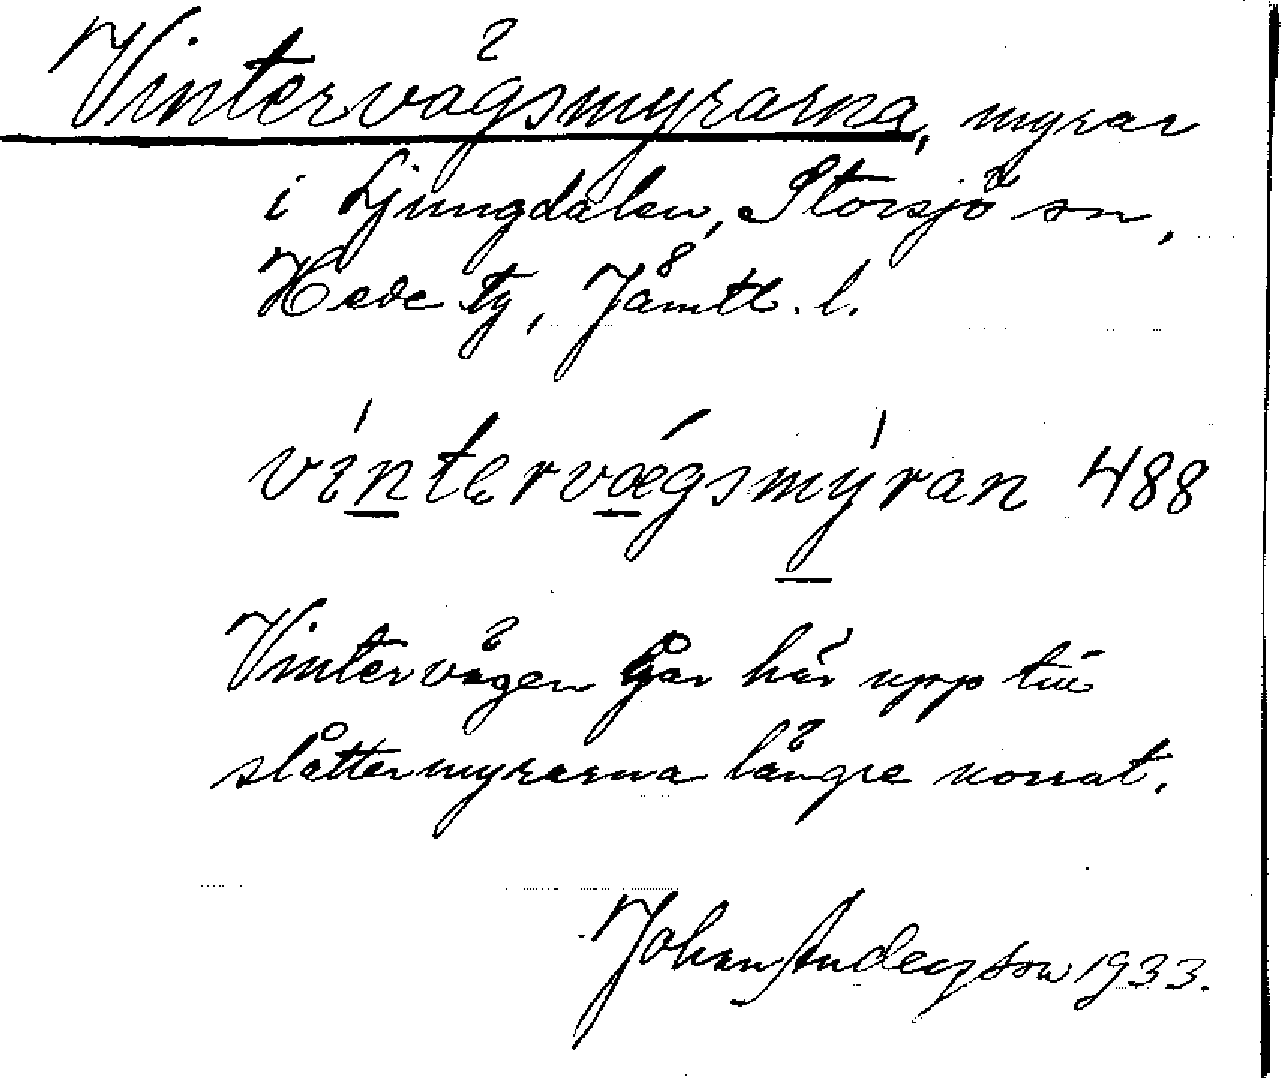 Vintervägsmyrarna, myrar
i Ljungdalen, Storsjö sn,
Hede tg, Jämtl. l.
víntervǽgsmýran 488
Vintervägen går här upp till
slåttermyrarna längre norrut.
Johan Anderzson 1933.